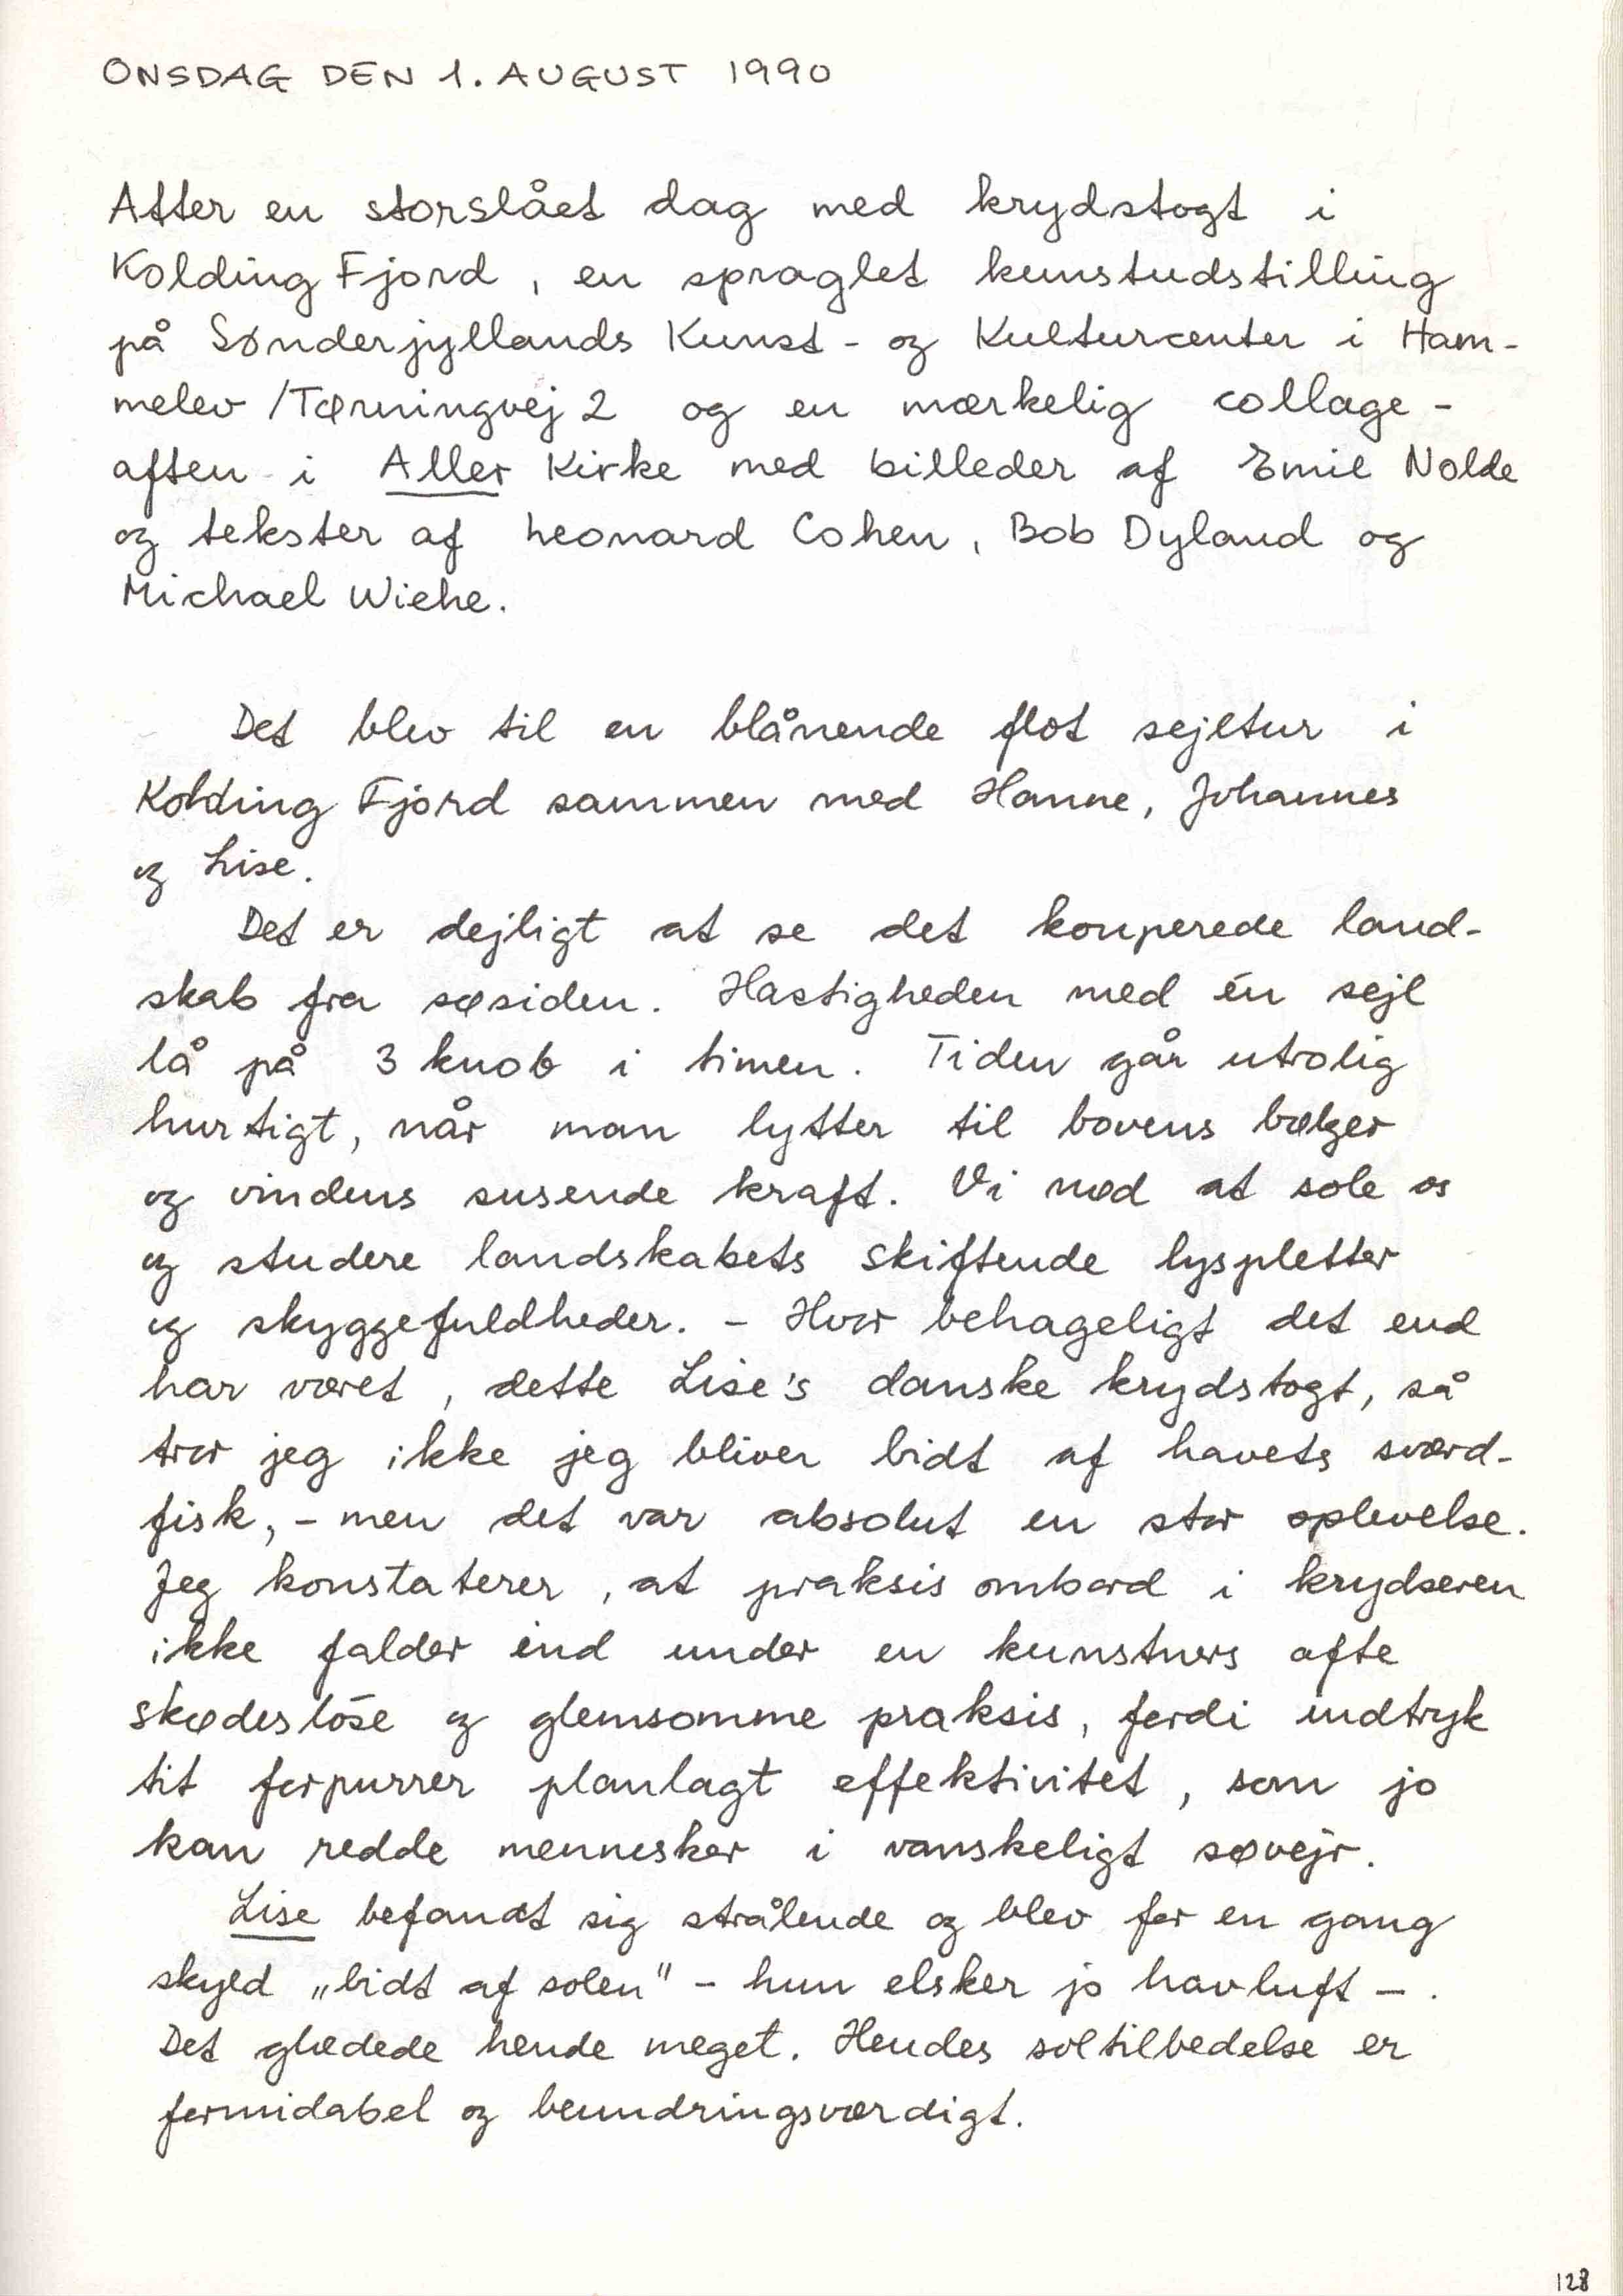 ONSDAG DEN 1. AUGUST 1990
Atter en storslået dag med krydstogt i
Kolding Fjord, en spraglet kunstudstilling
på Sønderjyllands Kunst- og Kulturcenter i Ham-
melev /Tørningvej 2 og en mærkelig collage-
aften i Aller Kirke med billeder af Emil Nolde
og tekster af Leonard Cohen, Bob Dyland og
Michael Wiehe.
Det blev til en blånende flot sejltur i
Kolding Fjord sammen med Hanne, Johannes
og Lise.
Det er dejligt at se det kouperede land-
skab fra søsiden. Hastigheden med én sejl
lå på 3 knob i timen. Tiden går utrolig
hurtigt, når man lytter til bovens bølger
og vindens susende kraft. Vi nød at sole os
og studere landskabets skiftende lyspletter
og skyggefuldheder. - Hvor behageligt det end
har været, dette Lise's danske krydstogt, så
tror jeg ikke jeg bliver bidt af havets sværd-
fisk, - men det var absolut en stor oplevelse.
Jeg konstaterer, at praksis ombord i krydseren
ikke falder ind under en kunstners ofte
skødesløse og glemsomme praksis, fordi indtryk
tit forpurrer planlagt effektivitet, som jo
kan redde mennesker i vanskeligt søvejr.
Lise befandt sig strålende og blev for en gang
skyld „bidt af solen" - hun elsker jo havluft - .
Det glædede hende meget. Hendes soltilbedelse er
formidabel og beundringsværdigt.
128